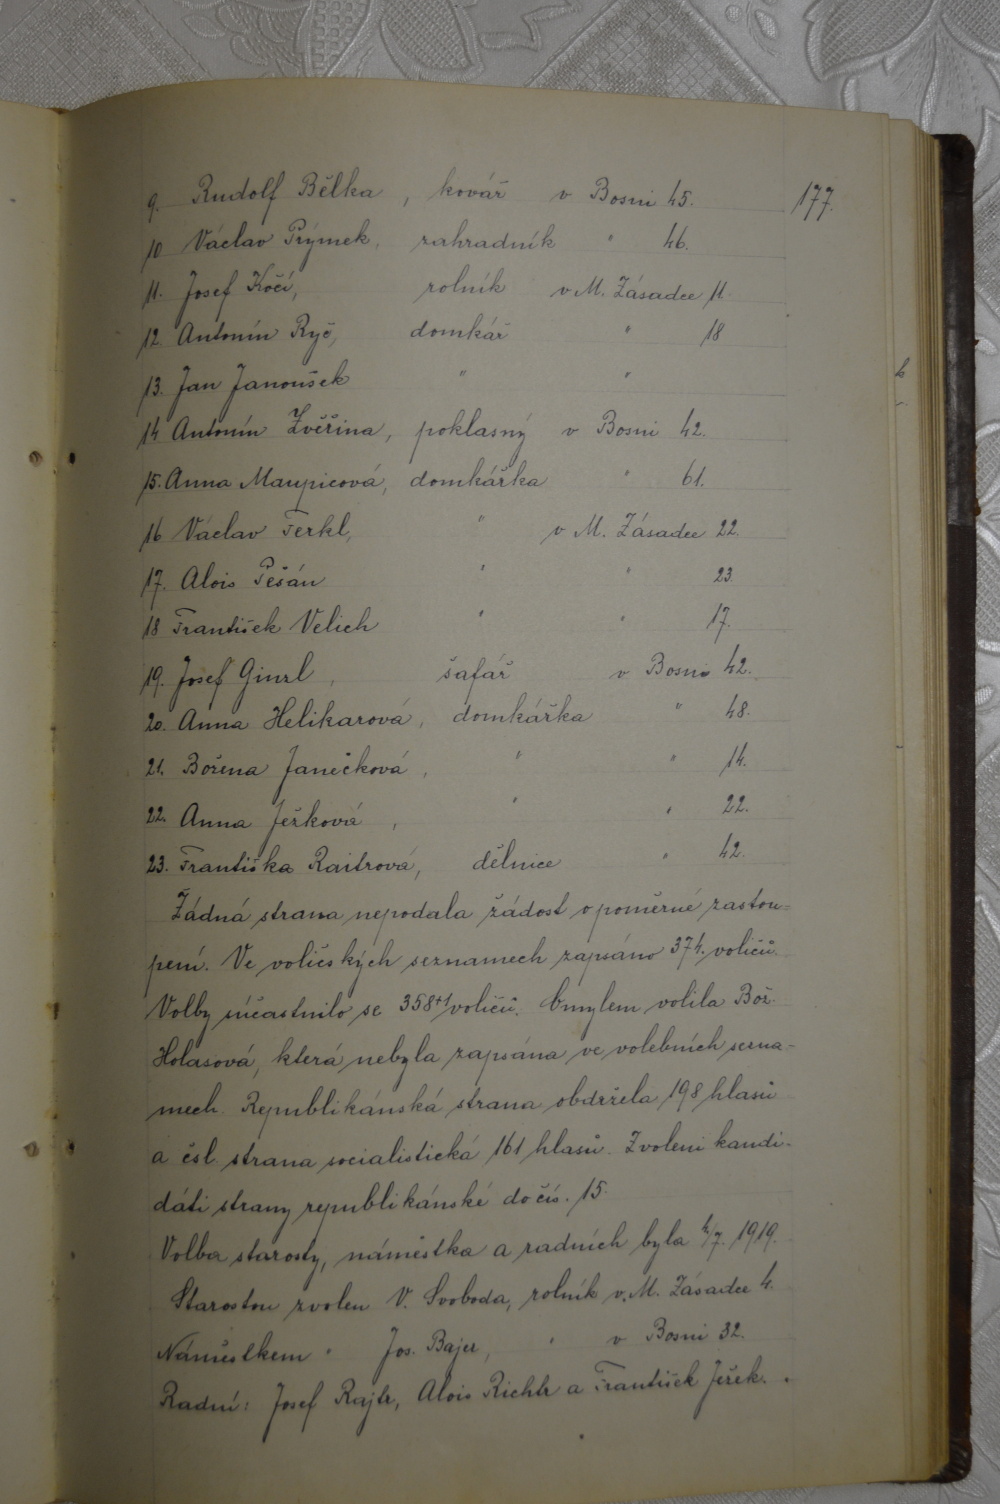 177.
9. Rudolf Bělka, kovář v Bosni 45.
10 Václav Prýmek, zahradník " 46.
11. Josef Kočí, rolník v M. Zásadce 11.
12. Antonín Ryč, domkář " 18
13. Jan Janoušek " "
14 Antonín Zvěřina, poklasný v Bosni 42.
15. Anna Maupicová, domkářka " 61.
16 Václav Ferkl, " v M. Zásadce 22.
17. Alois Pešán " " 23.
18 František Velich " " 17.
19. Josef Ginzl, šafář v Bosni 42.
20. Anna Helikarová, domkářka " 48.
21. Božena Janečková, " " 14.
22. Anna Ježková, " " 22.
23. Františka Raitrová, dělnice " 42.
Žádná strana nepodala žádost o poměrné zastou=
pení. Ve voličských seznamech zapsáno 374. voličů.
Volby súčastnilo se 358+1 voličů. Omylem volila Bož.
Holasová, která nebyla zapsána ve volebních sezna-
mech. Republikánská strana obdržela 198 hlasů
a čsl. strana socialistická 161 hlasů. Zvoleni kandi-
dáti strany republikánské do čís. 15.
Volba starosty, náměstka a radních byla 4/7. 1919.
Starostou zvolen V. Svoboda, rolník v M. Zásadce 4.
Náměstkem " Jos. Bajer, " v Bosni 32.
Radní: Josef Rajtr, Alois Richtr a František Ježek.